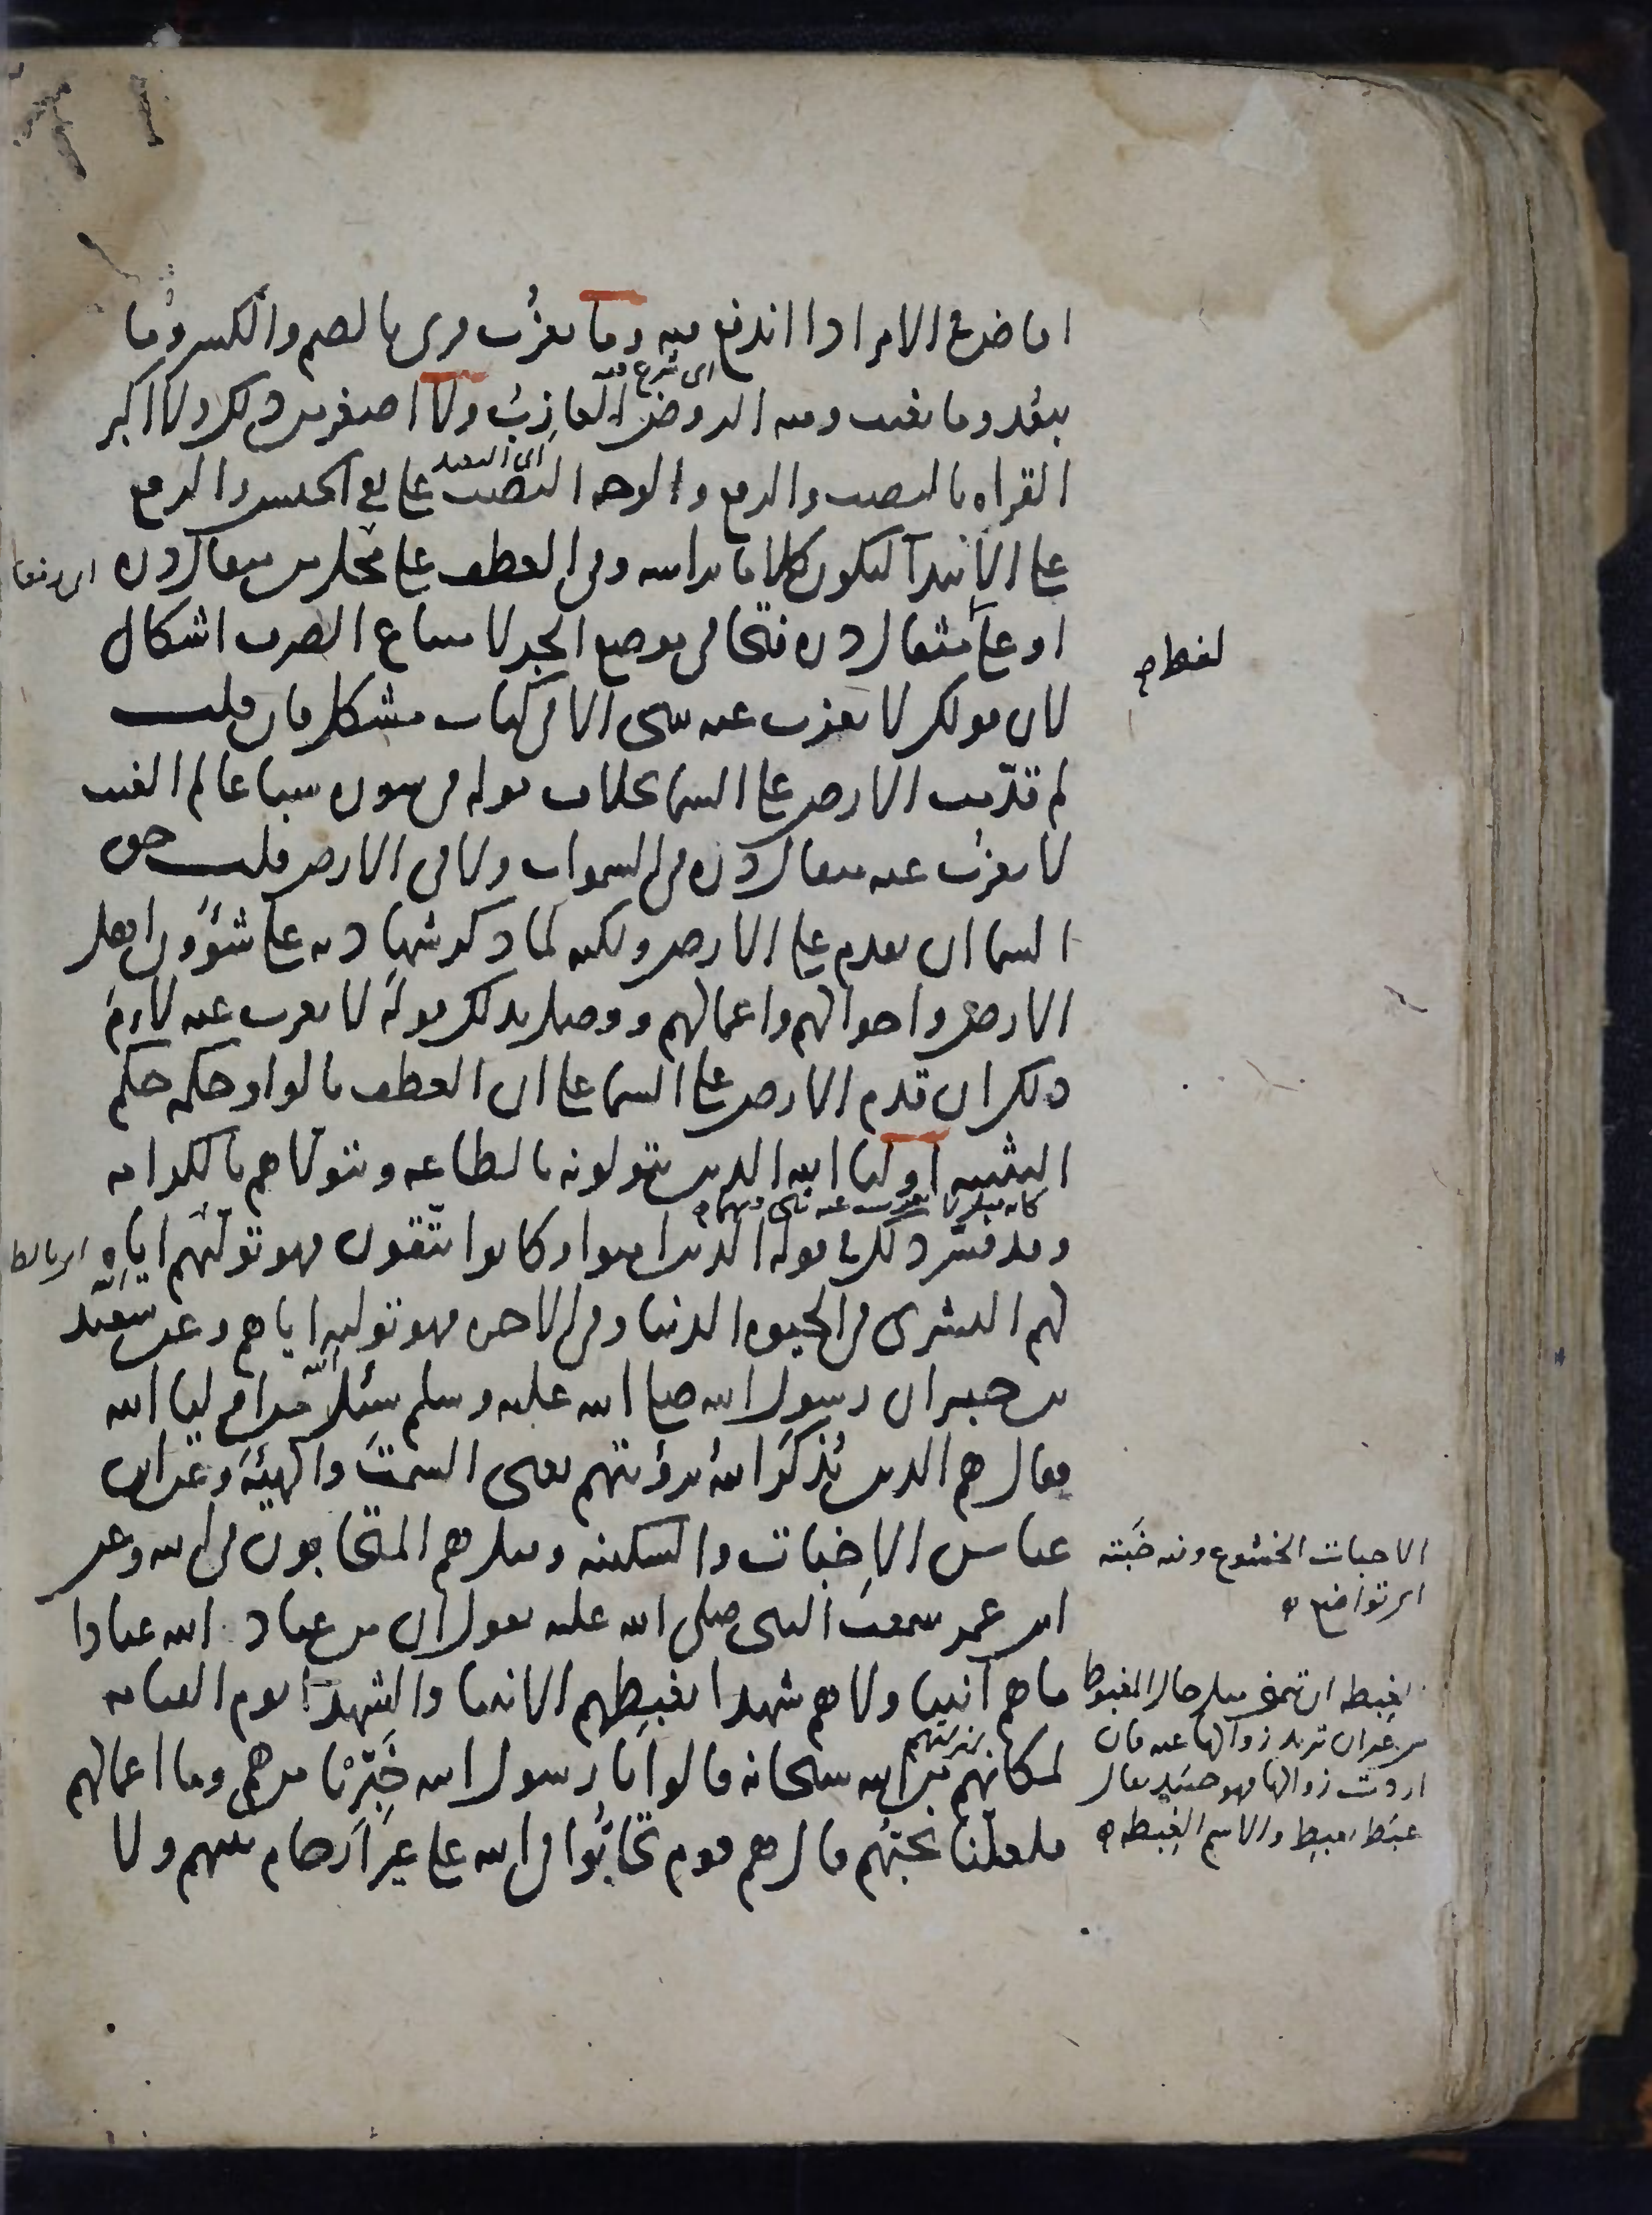 افاض في الامر اذا اندفع فيه وما يعزُب قرى بالضم والكسر وما
اى شرع فيه
يبعُد وما يغيب ومنه الروض العازِبُ ولا اصغر من ذلك ولا اكبر
اى البعيد
القراه بالنصب والرفع والوجه النصب على نفى الجنس والرفع
على الابتدآ ليكون كلاما براسه وفى العطف على محل من مثقال ذره
او على مثقال ذره فتحا فى موضع الجر لامتناع الصرف اشكال
لفظ
لان قولك لا يعزب عنه شى الا فى كتاب مشكل فان قلت
لم قدّمت الارض على السما بخلاف قوله فى سوره سبا عالم الغيب
لا يعزُب عنه مثقال ذره فى السموات ولا فى الارض قلت حق
السما ان تقدم على الارض ولكنه لما ذكر شهادته على شؤون اهل
الارض واحوالهم واعمالهم ووصل بذلك قوله لا يعزب عنه لاءم
ذلك ان قدم الارض على السما على ان العطف بالواو حكمه حكم
التثنيه اوليا الله الذين يتولونه بالطاعه ويتولاهم بالكرامه
وقد فسّر ذلك فى قوله الذين امنوا وكانوا يتّقون فهو تولّيهم اياه
لهم البشرى فى الحيوه الدنيا وفى الاخره فهو توليه اياهم وعن سَعيد
بن جبير ان رسول الله صلى الله عليه وسلم سُئل من اوليا الله
فقال هم الذين يُذكَر اللهُ برؤيتهم يعنى السمتَ والهيئهَ وعن ابن
عباس الاِخبات والسكينه وقيل هم المتحابون فى الله وعن
الاخبات الخشوع ومنه خَبَته
اى تواضع
ابن عمر سمعت النبى صلى الله عليه يقول ان من عباد الله عبادا
ما هم انبيا ولا هم شهدا يغبِطهم الانبيا والشهدا يوم القيامه
لمكانهم من الله سبحانه قالوا يا رسول الله خَبِّرْنا من هم وما اعمالهم
منزلتهم
فلعلّنا نحبّهُم قال هم قوم تحابُّوا فى الله على غير اَرحام بينهم ولا
الغبطه ان تتمنى مثل حال المغبوط
من غير ان تريد زوالها عنه فان
اردت زوالها فهو حسَد يقال
غبَط يغبِط والاسم الغِبطه